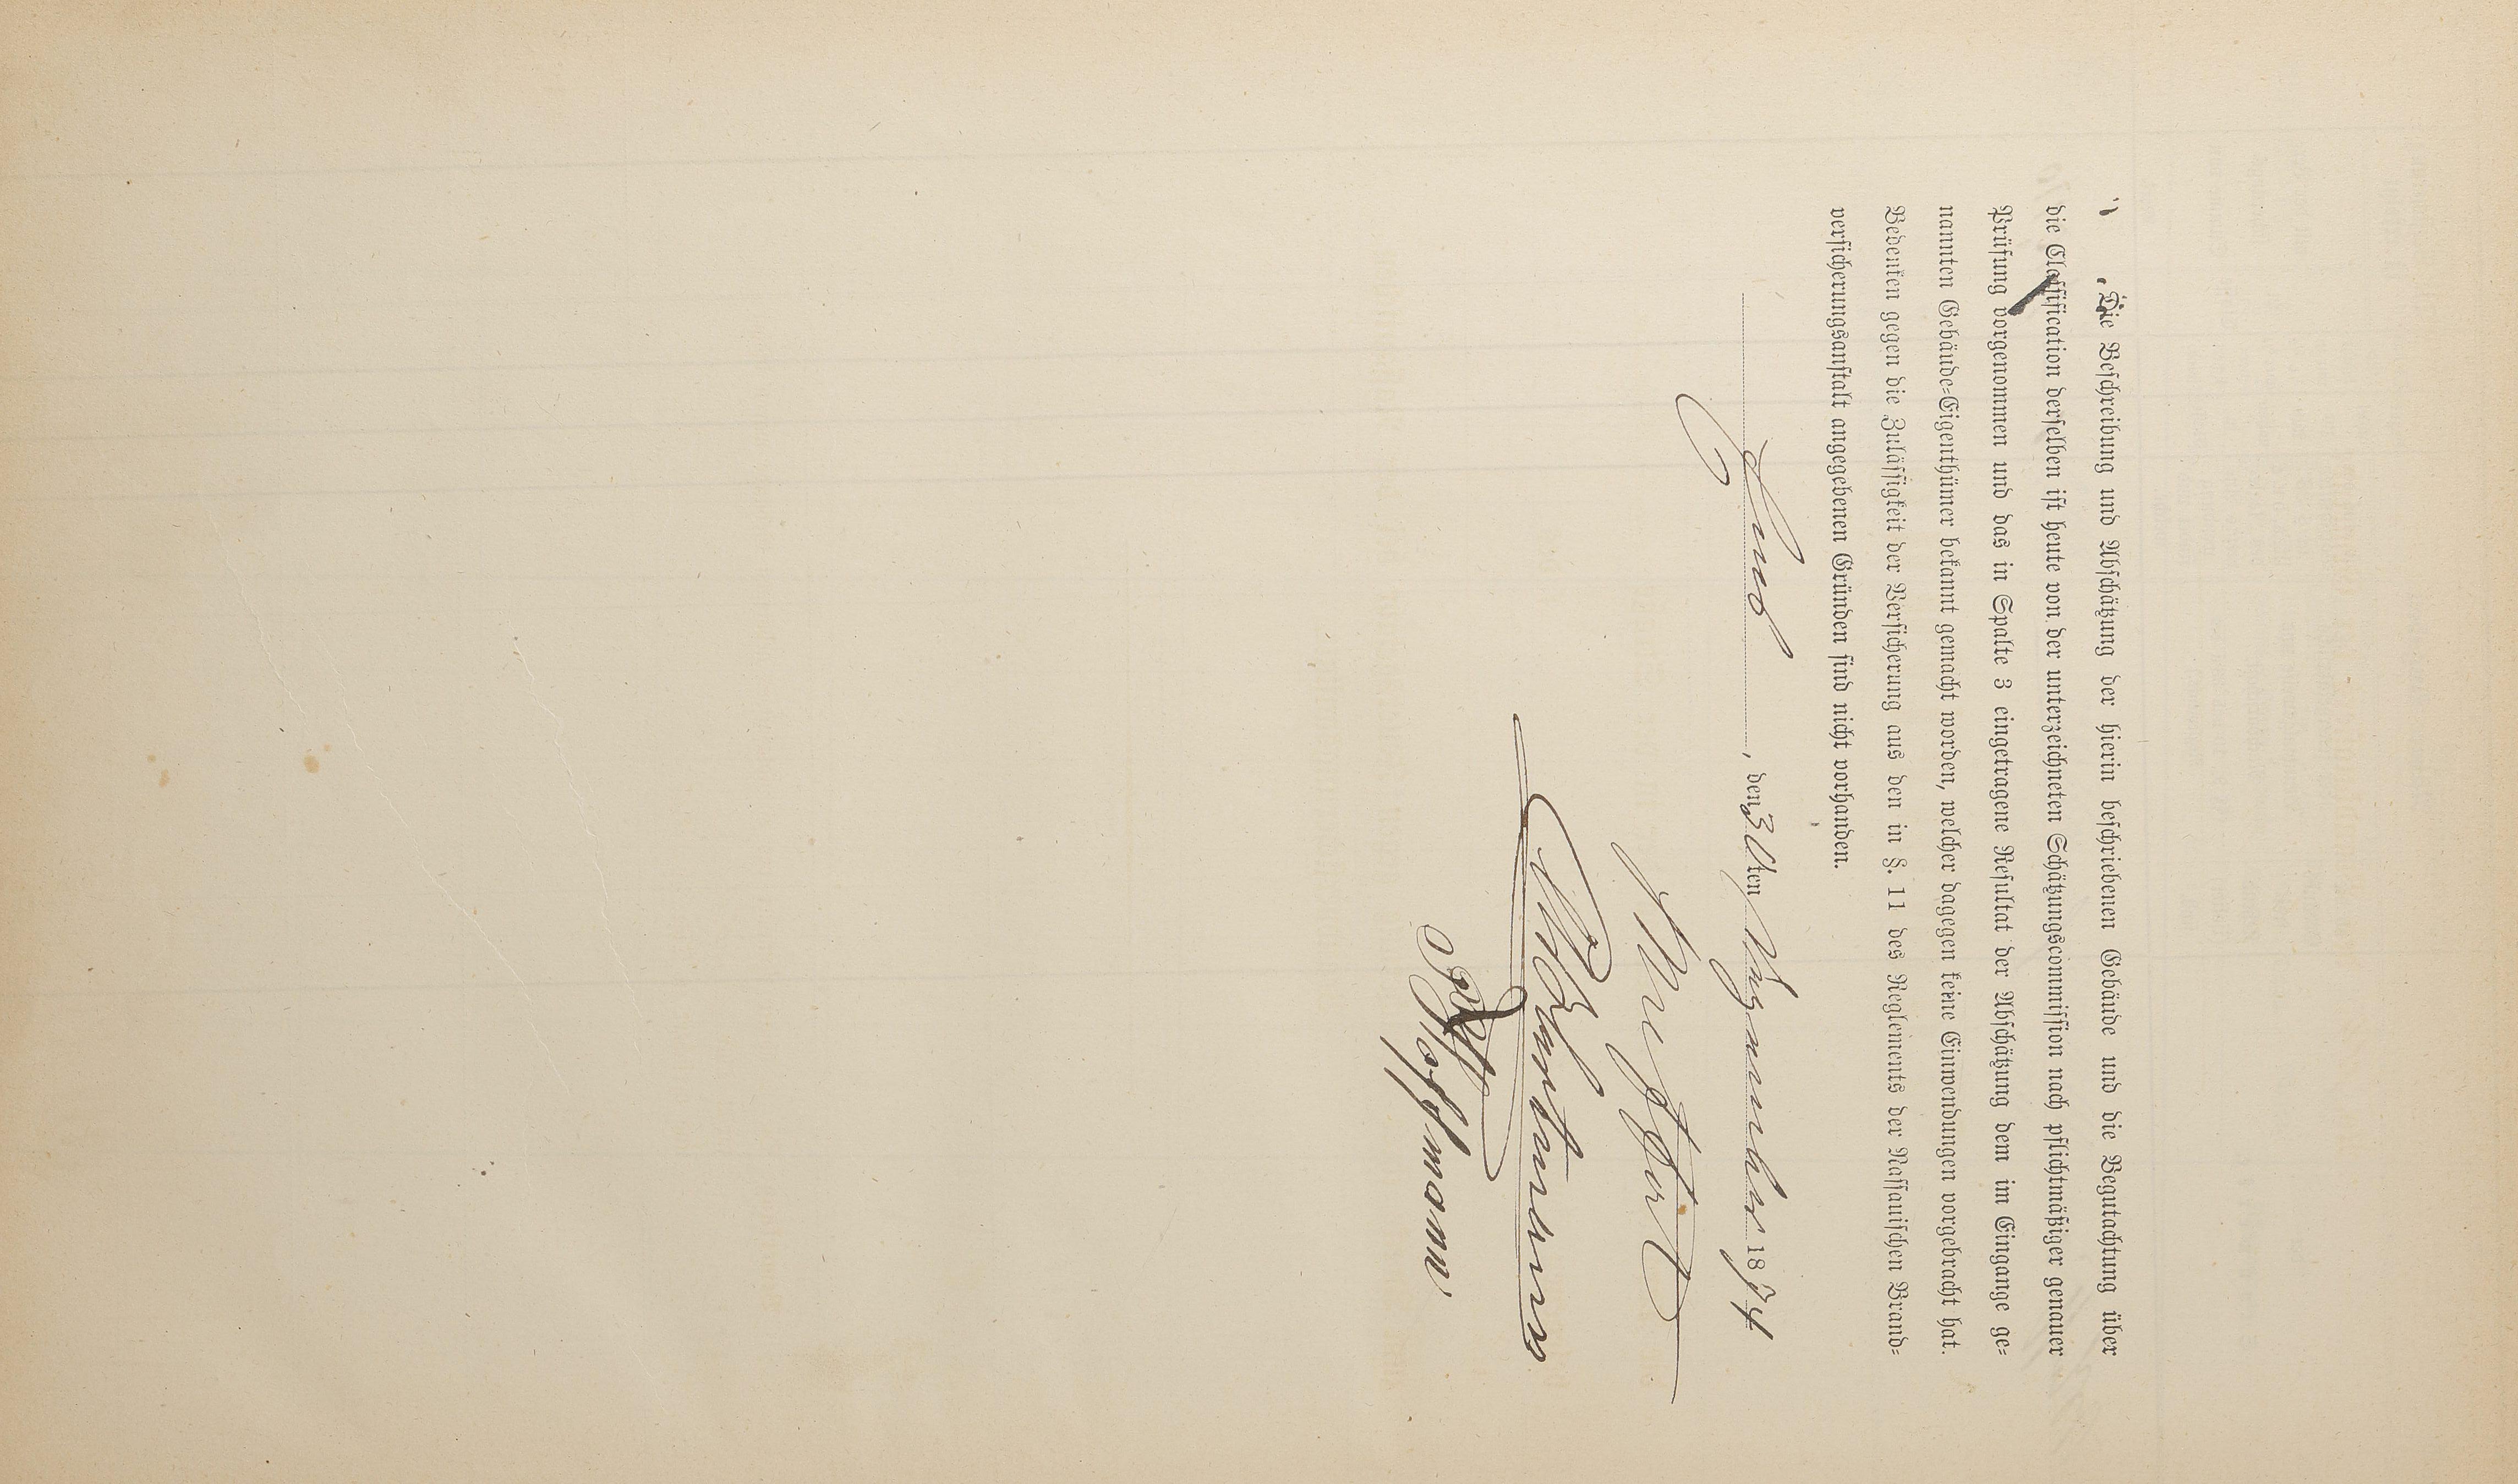 Die Beschreibung und Abschätzung der hierin beschriebenen Gebäude und die Begutachtung über
die Classification derselben ist heute von der unterzeichneten Schätzungscommission nach pflichtmäßiger genauer
Prüfung vorgenommen und das in Spalte 3 eingetragene Resultat der Abschätzung dem im Eingange ge=
nannten Gebäude=Eigenthümer bekannt gemacht worden, welcher dagegen keine Einwendungen vorgebracht hat.
Bedenken gegen die Zulässigkeit der Versicherung aus den in §. 11 des Reglements der Nassauischen Brand=
versicherungsanstalt angegebenen Gründen sind nicht vorhanden.
, den 3ten 1874
Hoffmann